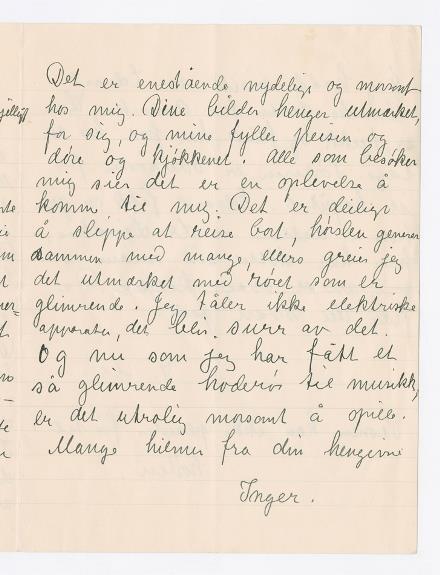 Det er enestående nydelig og morsomt
hos mig. Dine bilder henger utmærket,
for sig, og mine fyller peisen og
døre og kjøkkenet. Alle som besøker
mig sier det er en oplevelse å
komme til mig. Det er deiligt
å slippe at reise bort, hørslen generer
sammen med mange, ellers greier jeg
det utmærket med røret som er
glimrende. Jeg tåler ikke elektriske
apparater, det blir surr av det.
Og nu som jeg har fått et
så glimrende hoderør til musikk,
er det utrolig morsomt å spille.
Mange hilsner fra din hengivne
Inger.